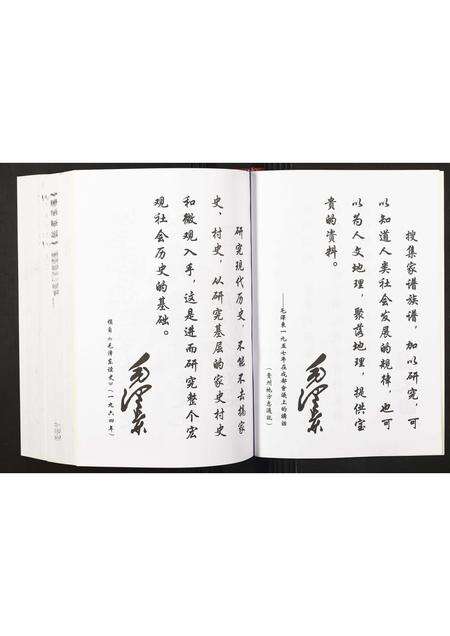 搜集家谱族谱，加以研究，可
以知道人类社会发展的规律，也可
以为人文地理，聚落地理，提供宝
贵的资料。
——毛泽东一九五七年在成都会议上的讲话
（贵州地方志通讯）
毛泽东
研究现代历史，不能不去搞家
史，村史，从研究基层的家史村史
和微观入手，这是进而研究整个宏
观社会历史的基础。
摘自《毛泽东读史》（一九六四年）
毛泽东